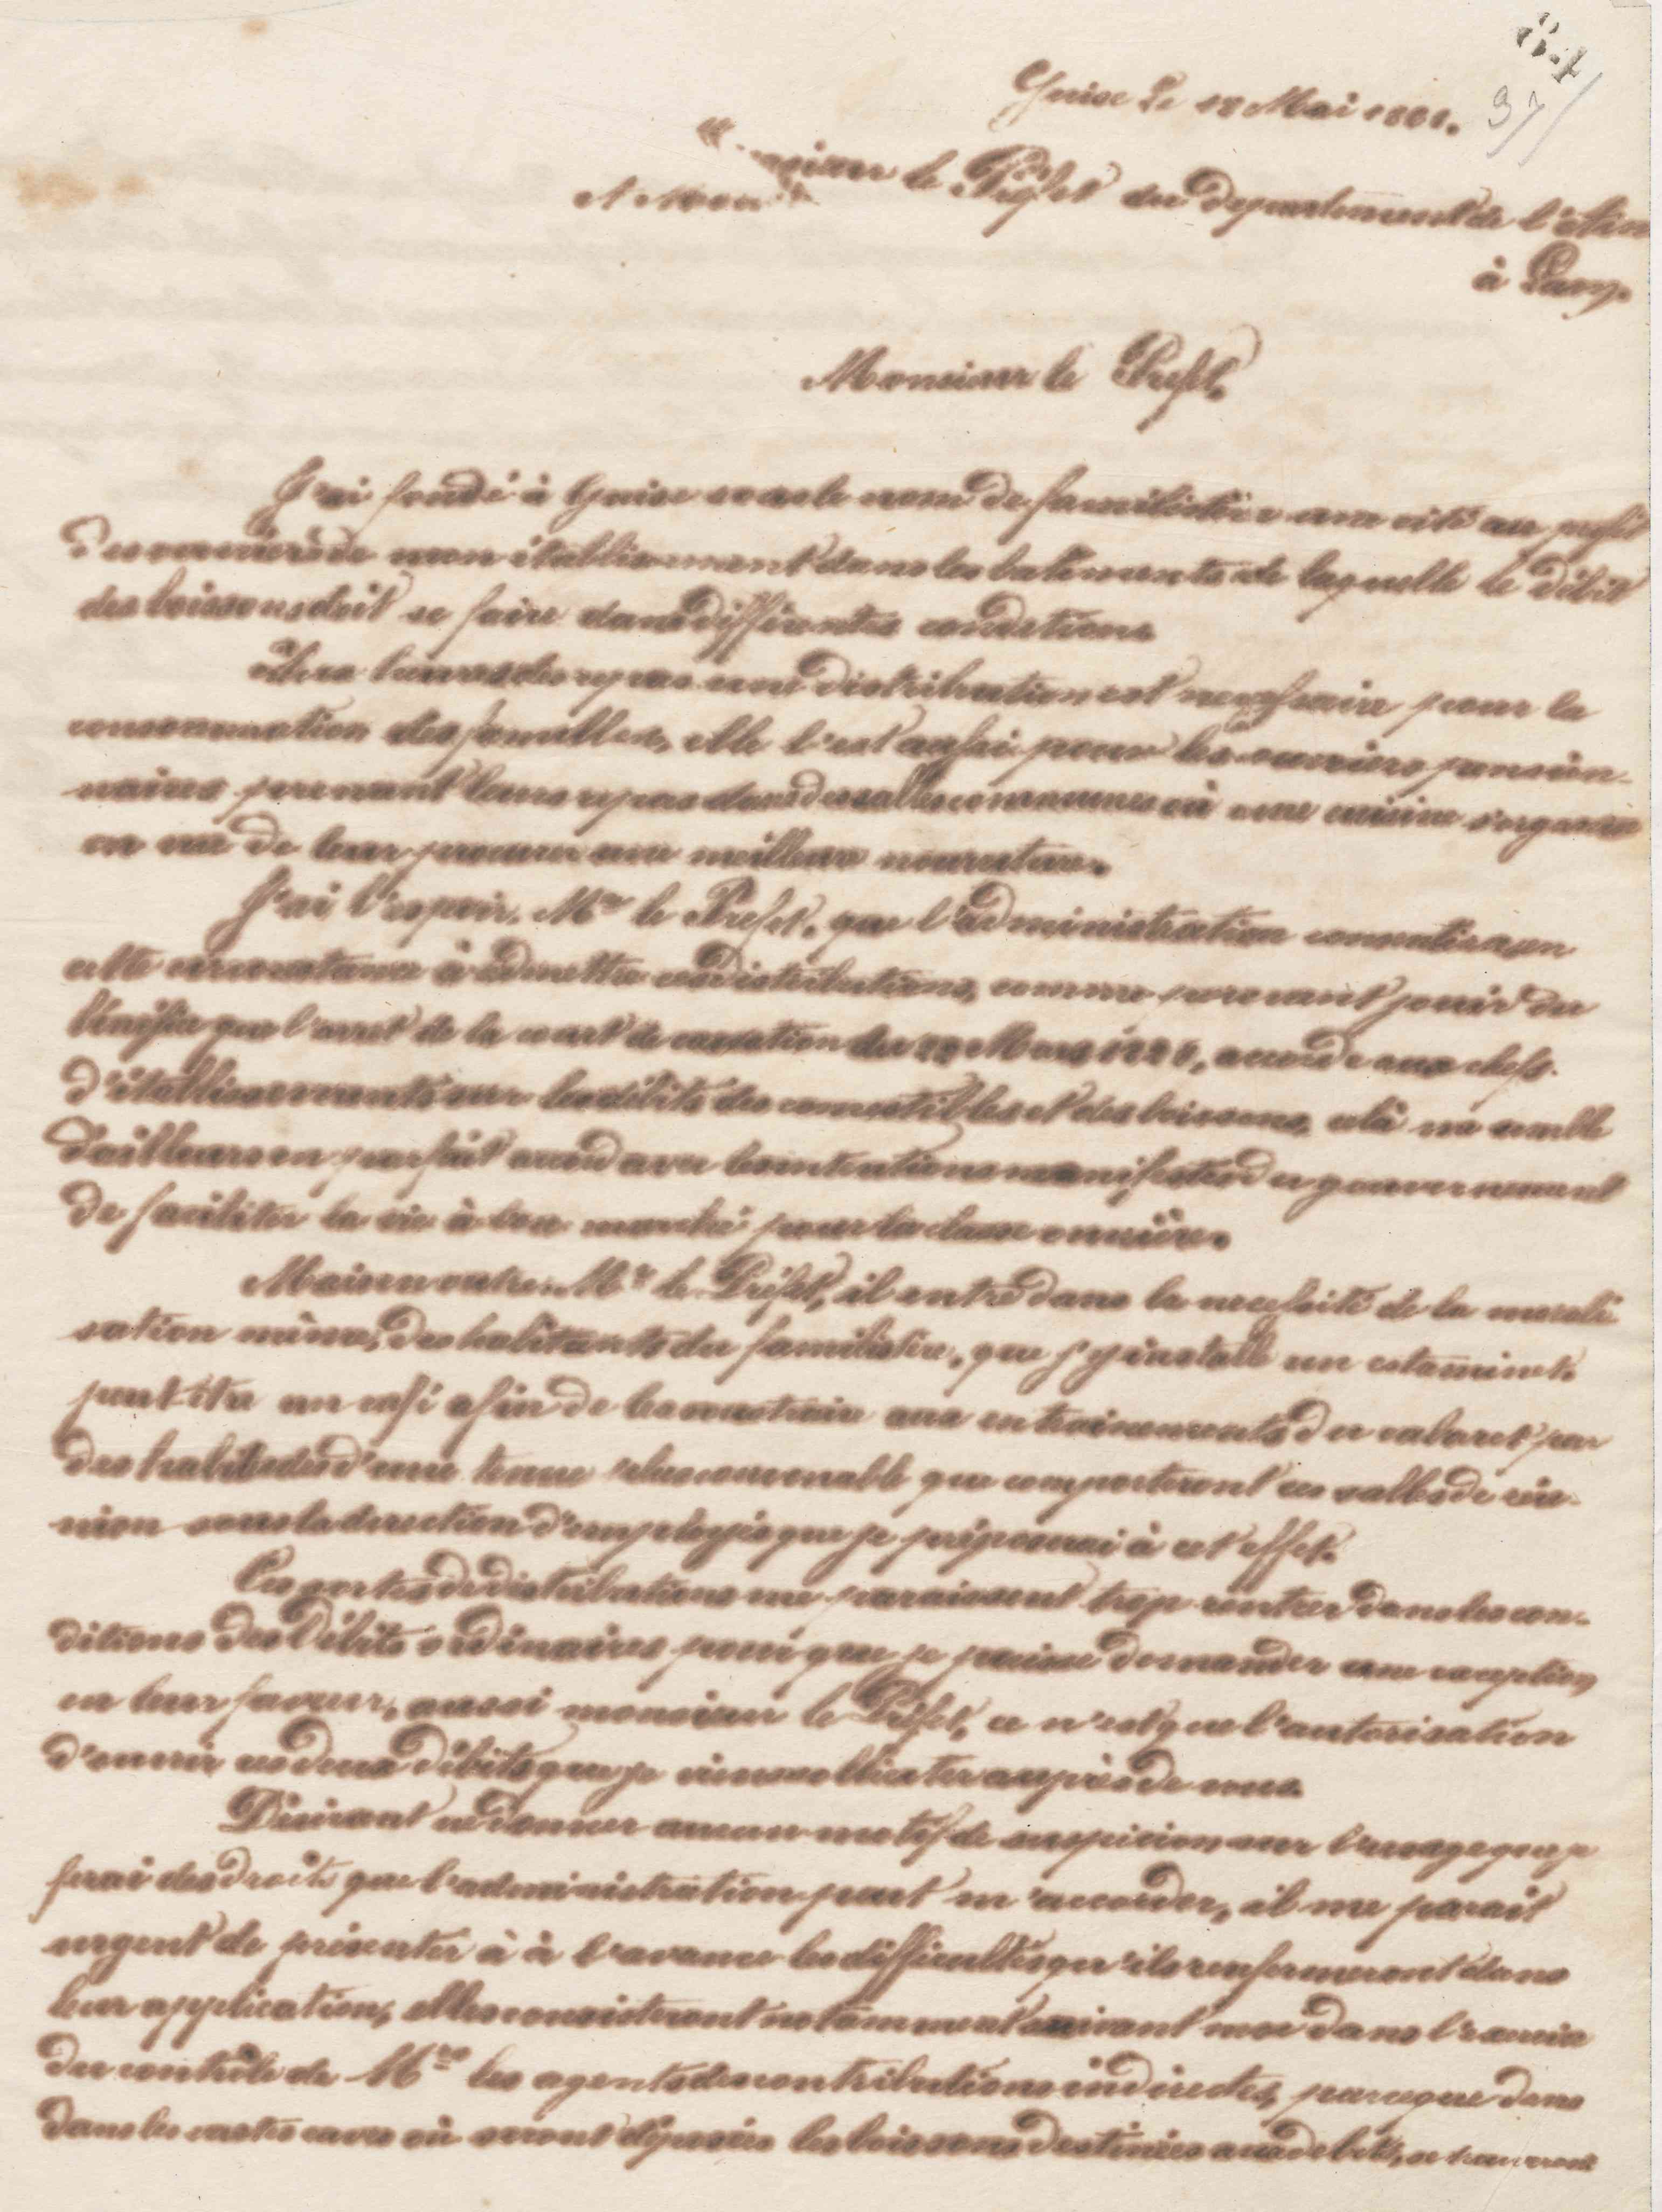 84
37
Guise le 18 Mai 1861.
A Monsieur le Préfet du département de l'Aisne
à Laon.
Monsieur le Préfet,
J'ai fondé à Guise sous le nom de familistère une cité au profit
des ouvriers de mon établissement dans les batiments de laquelle le débit
des boissons doit se faire dans différentes conditions.
Aux heures des repas une distribution est necessaire pour la
consommation des familles, elle l'est aussi pour les ouvriers pension-
naires prenant leurs repas dans des salles communes où une cuisine s'organise
en vue de leur procurer une meilleure nourriture.
J'ai l'espoir, Mr le Préfet, que l'administration consentira en
cette circonstance à admettre ces distributions, comme pouvant jouir du
bénéfice que l'arret de la court de cassation du Mars accorde aux chefs
d'établissements sur les débits des comestibles et des boissons, celà me semble
d'ailleurs en parfait accord avec les intentions manifestes du gouvernement
de faciliter la vie à bon marché pour la classe ouvrière.
Mais en outre, Mr le Préfet, il entre dans la necessité de la morali-
sation même, des habitants du familistère, que j'y installe un estaminet,
peut être un café afin de les soustraire aux entrainements du cabaret par
des habitudes d'une tenue plus convenable que comporteront ces salles de réu-
nion sous la direction d'employés que je préposerai à cet effet.
Ces sortes de distributions me paraissent trop rentrer dans les con-
ditions des débits ordinaires pour que je puisse demander une exception
en leur faveur, aussi monsieur le Préfet, ce n'est que l'autorisation
d'ouvrir ces deux débits que je viens solliciter auprès de vous.
Désirant ne donner aucun motif de suspicion sur l'usage que je
ferai des droits que l'administration peut m'accorder, il me parait
urgent de présenter à à l'avance les difficultés qu'ils renfermeront dans
leur application, elles consisteront notamment suivant moi dans l'exercice
du contrôle de Mrs les agents des contributions indirectes, parceque dans
dans les vastes caves où seront déposées les boissons destinées aux débits, se trouveront